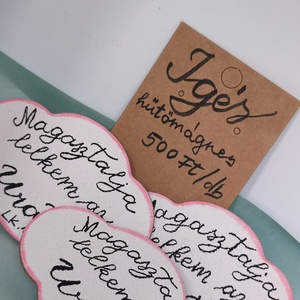 Igés
hűtőmágnes
500 Ft/db
Magasztalja
lelkem az
Ura
Lk.
Magasztalja
lelkem az
Magasztalja
lelkem az
U